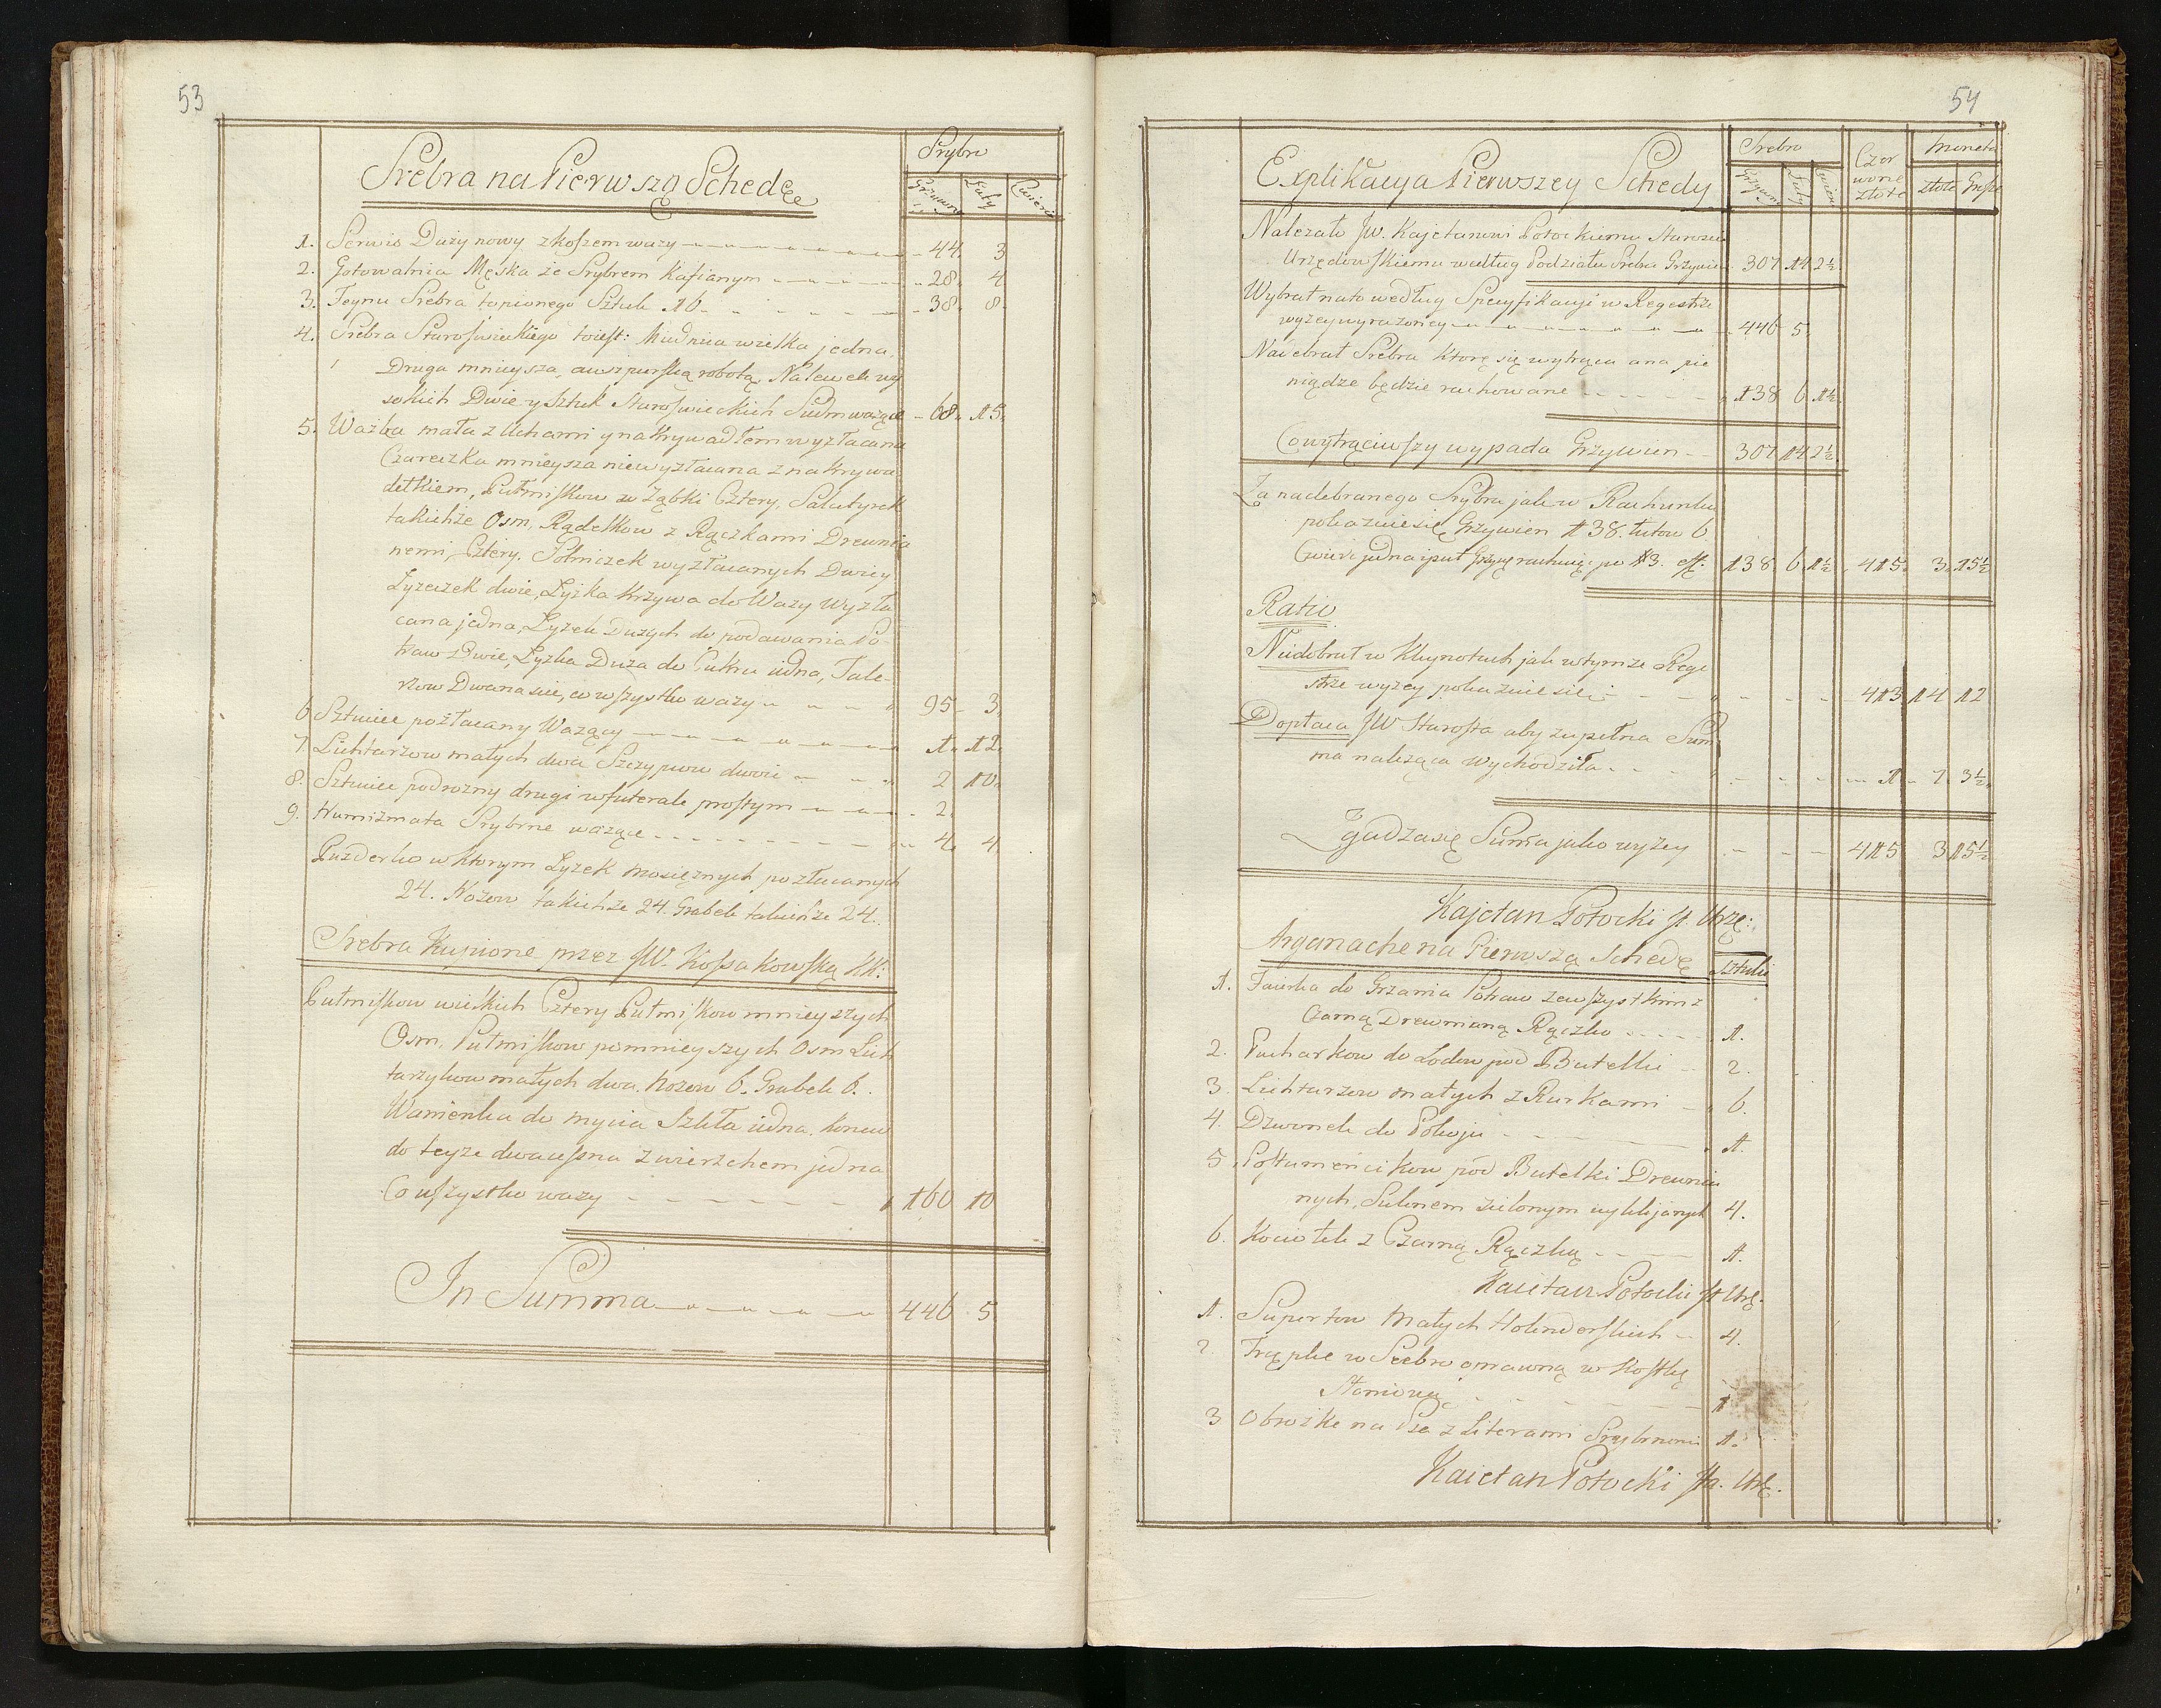 53
Srebra na Pierwszą Schedę
Srybro
Grzywny Łuty Cwierci
1. Serwis Duży nowy z koszem waży 44. 3
2. Gotowalnia Męska ze Srybrem Kafianym 28. 4
3. Teynu Srebra topionego Sztuk 16. 38. 8.
4. Srebra Staroswieckiego toiest: Miednica wielka jedna,
Druga mnieysza, auszpurską robotą, Nalewek wy
sokich Dwie y Sztuk Staroswieckich Siedm ważące 68. 15.
5. Wazka mała z Uchami y nakrywadłem wyzłacana
Czareczka mnieysza niewyzłacana z nakrywa
dełkiem, Putmiskow w Ząbki Cztery, Salaterek
takichże Osm, Rądelkow z Rączkami Drewnia
nemi, Cztery. Solniczek wyzłacanych Dwie y
Łyżeczek dwie, Łyżka krzywa do Wazy Wyzła
cana jedna, Łyżek Dużych do podawania Po-
traw Dwie, Łyżka Duża do Cukru iedna, Tale-
rzow Dwanascie, co wszystko waży 95. 3.
6 Sztuciec pozłacany Ważący 1. 12.
7 Lichtarzow małych dwa Szczypcow dwoie 2 10.
8. Sztuciec podrożny drugi w futerale prostym 2.
9. Numizmata Srybrne ważące 4. 4
Puzderko w ktorym Łyżek mosiężnych pozłacanych
24. Nożow takichże 24. Grabek takichże 24.
Srebra Kupione przez JW. Kossakowską KK:
Putmiskow wielkich Cztery Putmiskow mnieyszych
Osm, Putmiskow pomnieyszych Osm Lich
tarzykow małych dwa. Nożow 6. Grabek 6.
Wanienka do mycia Szkła iedna. Konew
do teyże dwauszna z wierzchem jedna
Co wszystko waży 160 10
In Summa 446 5
54
Explikacya Pierwszey Schedy
Srebro
Czer
wone
złote
Moneta
Grzywny Łuty Cwierci złote Grosze
Należało JW. Kajetanowi Potockiemu Staroscie
Urzędowskiemu według Podziału Srebra Grzywien 307 14 2½
Wybrał na to według Specyfikacyi w Regestrze
wyżey wyrażoney 446 5
Nadebrał Srebra ktore się wytrąca a na pie
niądze będzie rachowane 138 6 1½
Co wytrąciwszy wypada Grzywien 307 14 2½
Za nadebranego Srybra jak w Rachunku
pokazuie się Grzywien 138. Łutow 6.
Cwierc jedna i puł Grzyw rachuiąc po 13. 138 6 1½ 415. 3. 15½
Ratio
Niedobrał w Kleynotach jak w tymże Rege
strze wyżey pokazuie się 413 14 12
Dopłaca JW Starosta aby zupełna Sum
ma należąca wychodziła 1 7 3½
Zgadza się Summa jako wyżey 415 3 15½
Kajetan Potocki St. Urzę:
Arganache na Pierwszą Schedę
Sztuki
1. Faierka do Grzania Potraw ze wszystkim z
Czarną Drewnianą Rączką 1.
2. Pucharkow do Lodow pod Butelki 2.
3 Lichtarzow małych z Rurkami 6.
4. Dzwonek do Pokoju 1.
5 Postumencikow pod Butelki Drewnia
nych, Suknem zielonym wyklejanych 4.
6. Kociołek z Czarną Rączką 1.
Kaietan Potocki St Urzę.
1. Supertow Małych Holenderskich 4.
2. Frąplie w Srebro oprawną w Kostkę
Słoniową 1
3 Obrożkę na Psa z Literami Srybrnemi 1.
Kaietan Potocki Sta. Urzę.